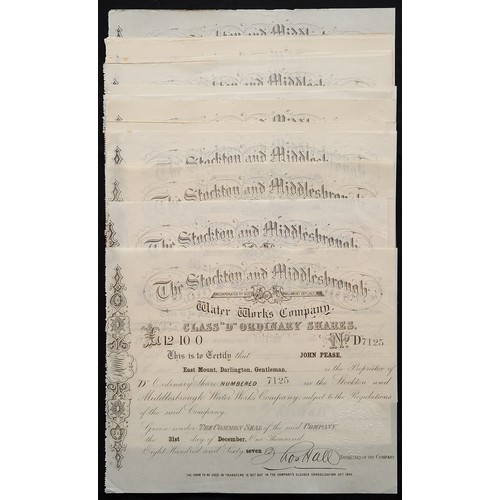 Stockton and Middlesb
ton and Middlesb
Stockton and Middlesb
The Stockton and Middlesb
The Stockton and Middlesbrough
The Stockton and Middlesbrough
The Stockton and Middlesbrough
INCORPORATED BY ACT PARLIAMENT
Water Works Company.
CLASS "D" ORDINARY SHARES.
£12 10 0 No D7125
This is to Certify that JOHN PEASE,
East Mount, Darlington, Gentleman, is the Proprietor of
"D" Ordinary Share NUMBERED 7125 in the Stockton and
Middlesbrough Water Works Company, subject to the Regulations
of the said Company.
Given under THE COMMON SEAL of the said COMPANY
the 31st day of December, One Thousand
Eight Hundred and Sixty seven
Thos Hall SECRETARY OF THE COMPANY
THE FORM TO BE USED IN TRANSFERS IS SET OUT IN THE COMPANY'S CLAUSES CONSOLIDATION ACT 1845.